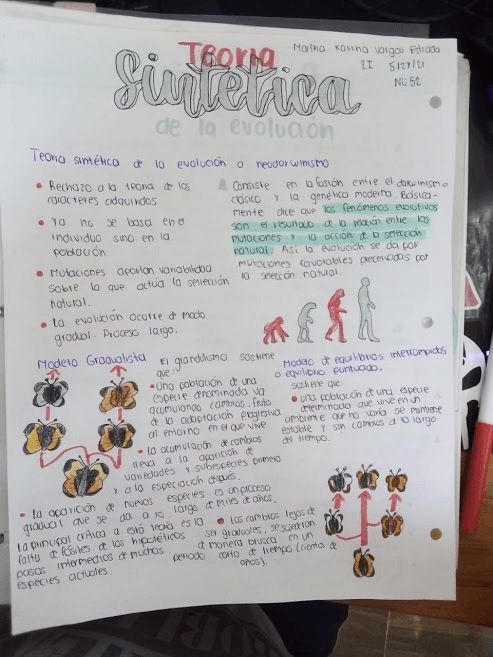 Teoria
Sintética
de la evolución
Martha Karina Vargas Estrada
2I 5/27/21
NL 52
Teoria sintética de la evolución o neodarwinismo
• Rechazo a la teoria de los
caracteres adquiridos
• Ya no se basa en el
individuo sino en la
población
• Mutaciones aportan variabilidad
sobre la que actúa la selección
natural.
• La evolución ocurre de modo
gradual. Proceso largo.
Consiste en la fusión entre el darwinismo
clásico y la genética moderna. Básica-
mente dice que los fenómenos evolutivos
son el resultado de la relación entre las
mutaciones y la acción de la selección
natural. Así la evolución se da por
mutaciones favorables
la selección natural.
Modelo Gradualista
El gradualismo sostiene
que:
• Una población de una
especie denominada va
acumulando cambios, fruto
de la adaptación progresiva
al entorno en el que vive.
• La acumulación de cambios
lleva a la aparición de
variedades y subespecies primero
y a la especiación después.
• La aparición de nuevas especies es un proceso
gradual que se da a lo largo de miles de años.
La principal crítica a está teoría es la
falta de fósiles de los hipotéticos
pasos intermedios de muchas
especies actuales.
Modelo de equilibrios interrumpidos
o equilibrio puntuado.
sostiene que
• una población de una especie
determinada que vive en un
ambiente que no varía se mantiene
estable y sin cambios a lo largo
del tiempo.
• Los cambios lejos de
ser graduales, se suceden
de manera brusca en un
periodo corto de tiempo (cientos de
años).